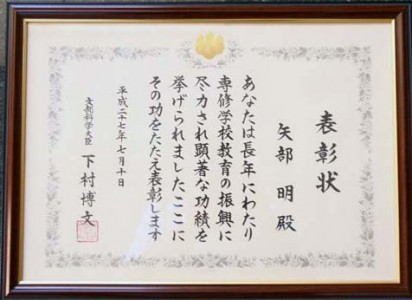 表彰状
矢部 明 殿
あなたは長年にわたり
専修学校教育の振興に
尽力され顕著な功績を
挙げられましたここに
その功をたたえ表彰します
平成二十七年七月十日
文部科学大臣 下村博文